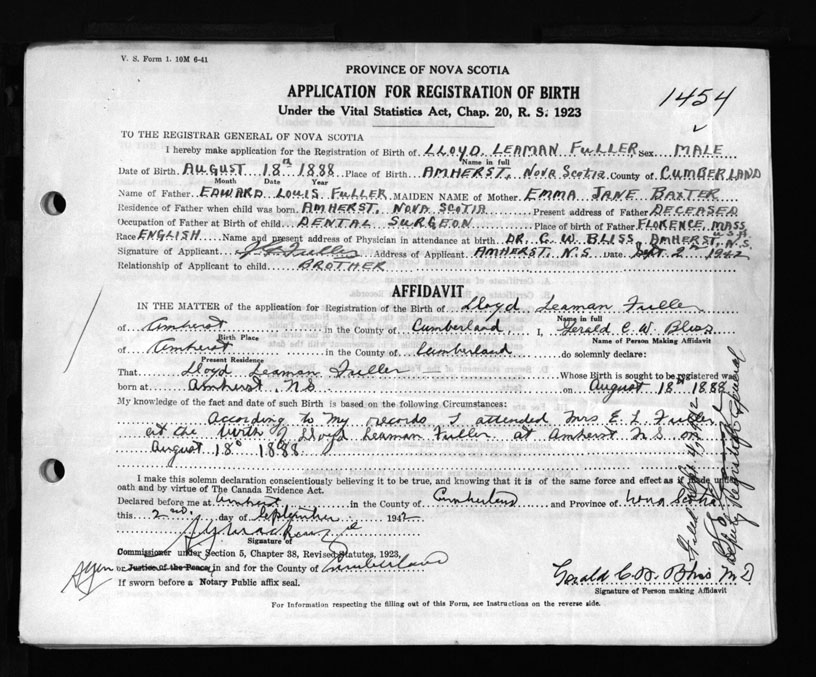 V. S. Form 1. 10M 6-41
PROVINCE OF NOVA SCOTIA
APPLICATION FOR REGISTRATION OF BIRTH
Under the Vital Statistics Act, Chap. 20, R. S. 1923
1454
TO THE REGISTRAR GENERAL OF NOVA SCOTIA
I hereby make application for the Registration of Birth of LLOYD LEAMAN FULLER Sex MALE
Name in full
Date of Birth AUGUST 18th 1888 Place of Birth AMHERST, NOVA SCOTIA County of CUMBERLAND
Month Date Year
Name of Father EDWARD LOUIS FULLER MAIDEN NAME of Mother EMMA JANE BAXTER
Residence of Father when child was born AMHERST, NOVA SCOTIA Present address of Father DECEASED
Occupation of Father at Birth of child DENTAL SURGEON Place of birth of Father FLORENCE, MASS U.S.A.
Race ENGLISH Name and present address of Physician in attendance at birth DR. C. W. BLISS, AMHERST, N.S.
Signature of Applicant Fuller Address of Applicant AMHERST, N.S. Date Sept 2nd 1942
Relationship of Applicant to child BROTHER
AFFIDAVIT
IN THE MATTER of the application for Registration of the Birth of Lloyd Leaman Fuller
Name in full
of Amherst in the County of Cumberland, I, Gerald C. W. Bliss
Birth Place Name of Person Making Affidavit
of Amherst in the County of Cumberland do solemnly declare:
Present Residence
That Lloyd Leaman Fuller Whose Birth is sought to be registered was
born at Amherst, N.S. on August 18th 1888
My knowledge of the fact and date of such Birth is based on the following Circumstances:
According to my records I attended Mrs E. L. Fuller
at the birth of Lloyd Leaman Fuller at Amherst N.S. on
August 18th 1888
I make this solemn declaration conscientiously believing it to be true, and knowing that it is of the same force and effect as if made under
oath and by virtue of The Canada Evidence Act.
Declared before me at Amherst in the County of Cumberland and Province of Nova Scotia
this 2nd day of September 1942
Signature of
Commissioner under Section 5, Chapter 38, Revised Statutes, 1923,
or Justice of the Peace, in and for the County of Cumberland
If sworn before a Notary Public affix seal.
Gerald C. W. Bliss M D
Signature of Person making Affidavit
For Information respecting the filling out of this Form, see Instructions on the reverse side.
Deputy Registrar General